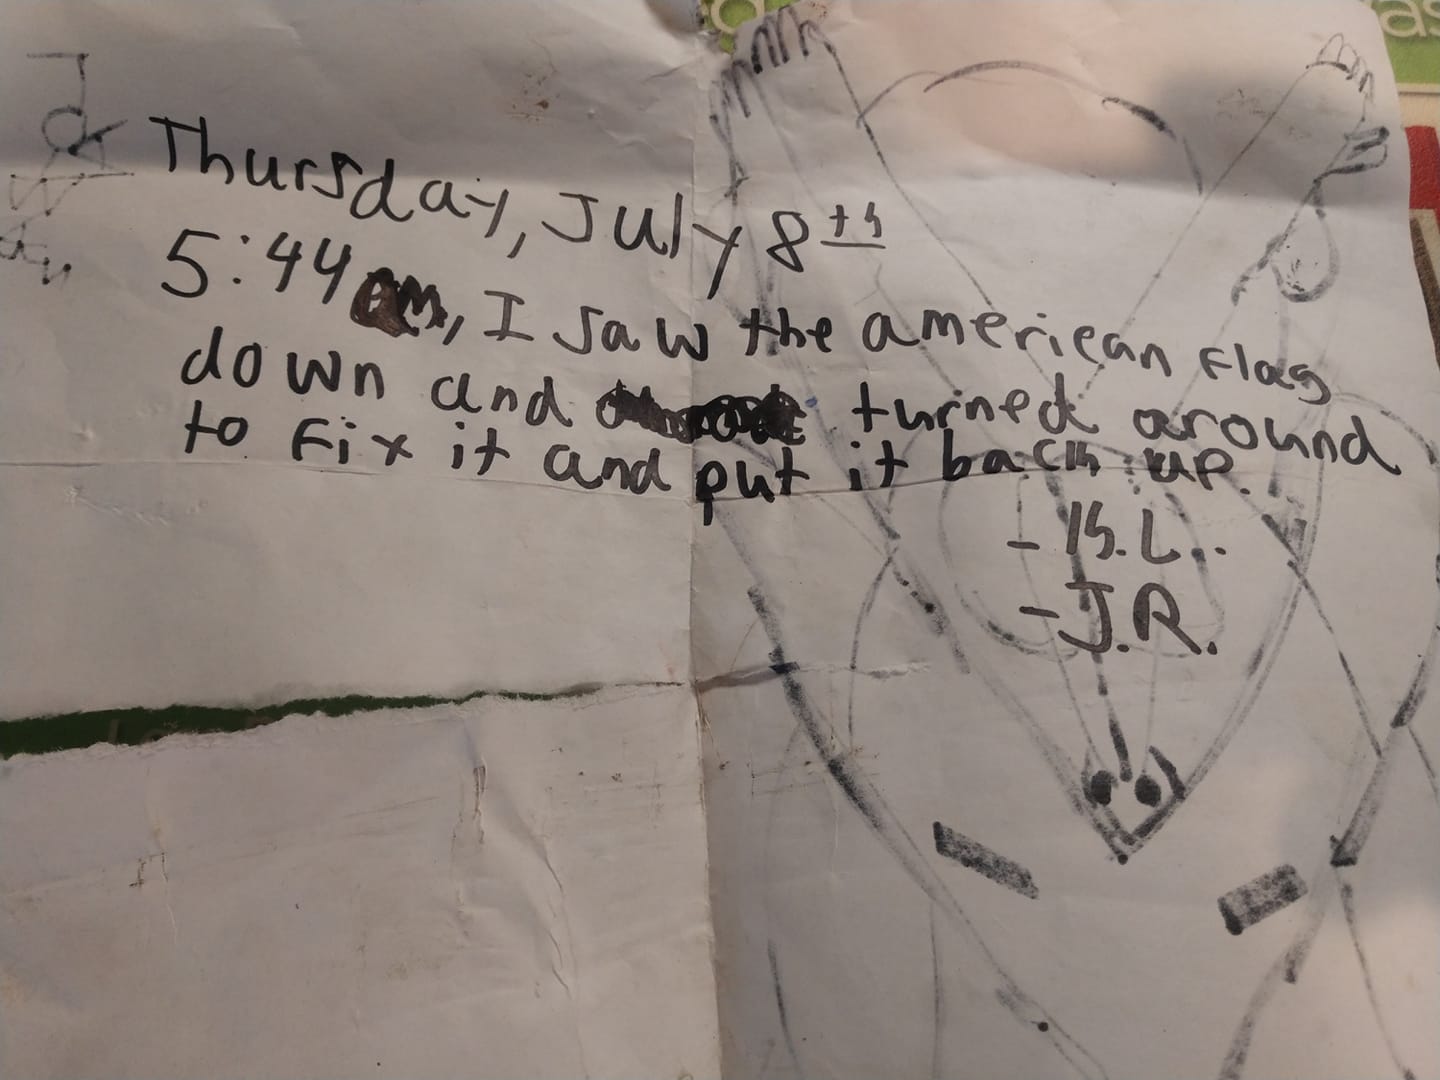 Thursday, July 8th
5:44 am, I saw the american flag
down and turned around
to fix it and put it back up.
- K.L..
- J.R.
as